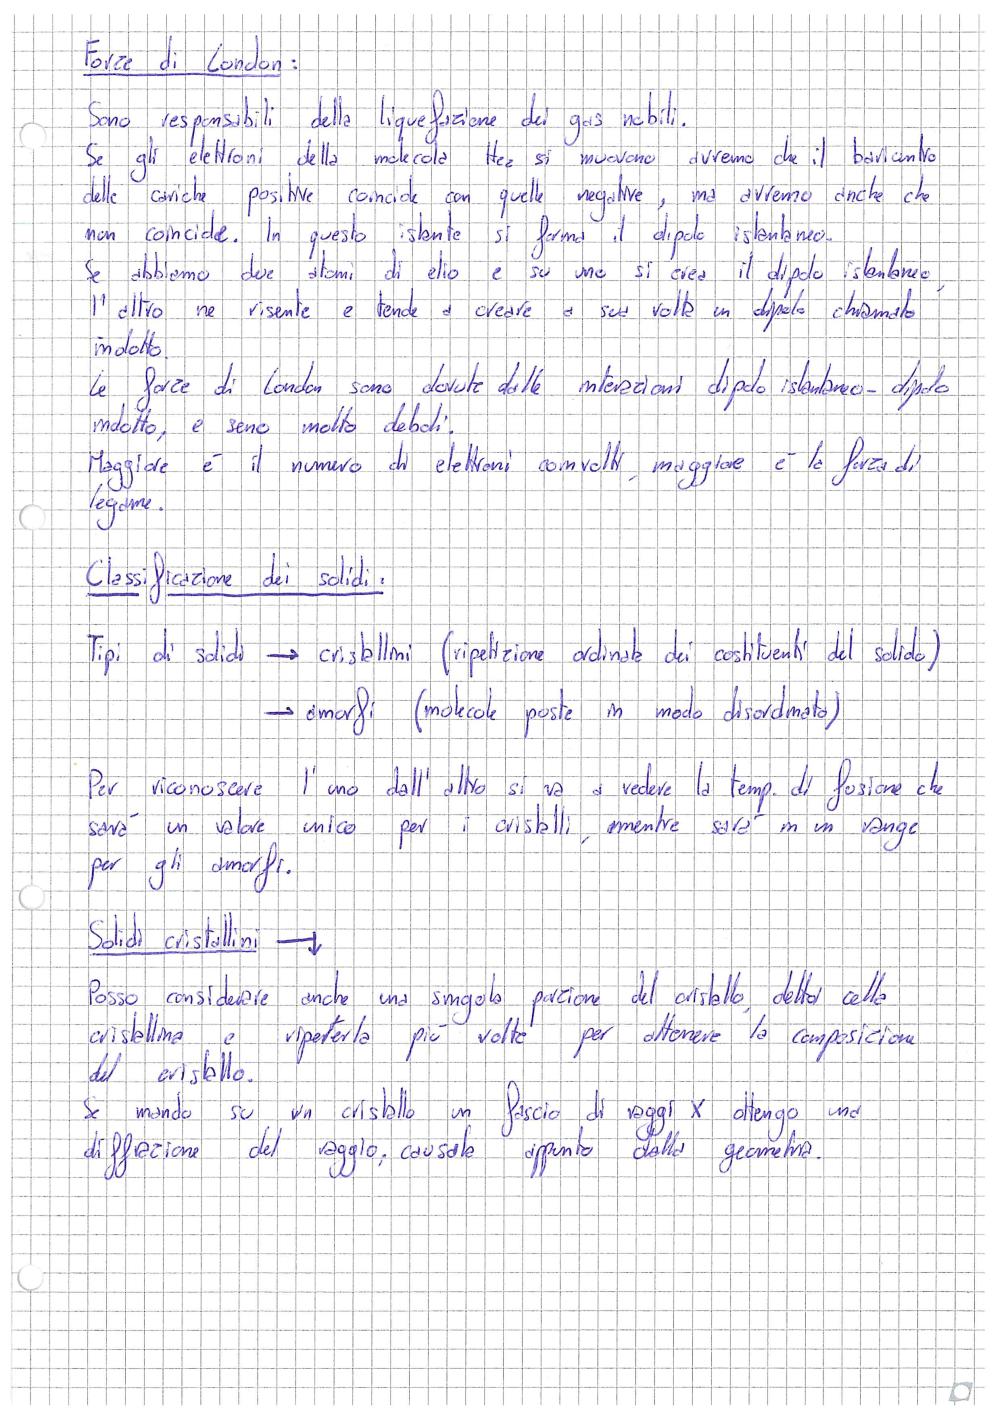 Forze di London:
Sono responsabili della liquefazione dei gas nobili.
Se gli elettroni della molecola He₂ si muovono avremo che il baricentro
delle cariche positive coincide con quelle negative, ma avremo anche che
non coincide. In questo istante si forma il dipolo istantaneo.
Se abbiamo due atomi di elio e su uno si crea il dipolo istantaneo,
l'altro ne risente e tende a creare a sua volta un dipolo chiamato
indotto.
Le forze di London sono dovute dalle interazioni dipolo istantaneo - dipolo
indotto, e sono molto deboli.
Maggiore è il numero di elettroni coinvolti, maggiore è la forza di
legame.
Classificazione dei solidi:
Tipi di solidi → cristallini (ripetizione ordinata dei costituenti del solido)
→ amorfi (molecole poste in modo disordinato)
Per riconoscere l'uno dall'altro si va a vedere la temp. di fusione che
sarà un valore unico per i cristalli, mentre sarà in un range
per gli amorfi.
Solidi cristallini →
Posso considerare anche una singola porzione del cristallo, detta cella
cristallina e ripeterla più volte per ottenere la composizione
del cristallo.
Se mando su un cristallo un fascio di raggi X ottengo una
diffrazione del raggio, causata appunto dalla geometria.